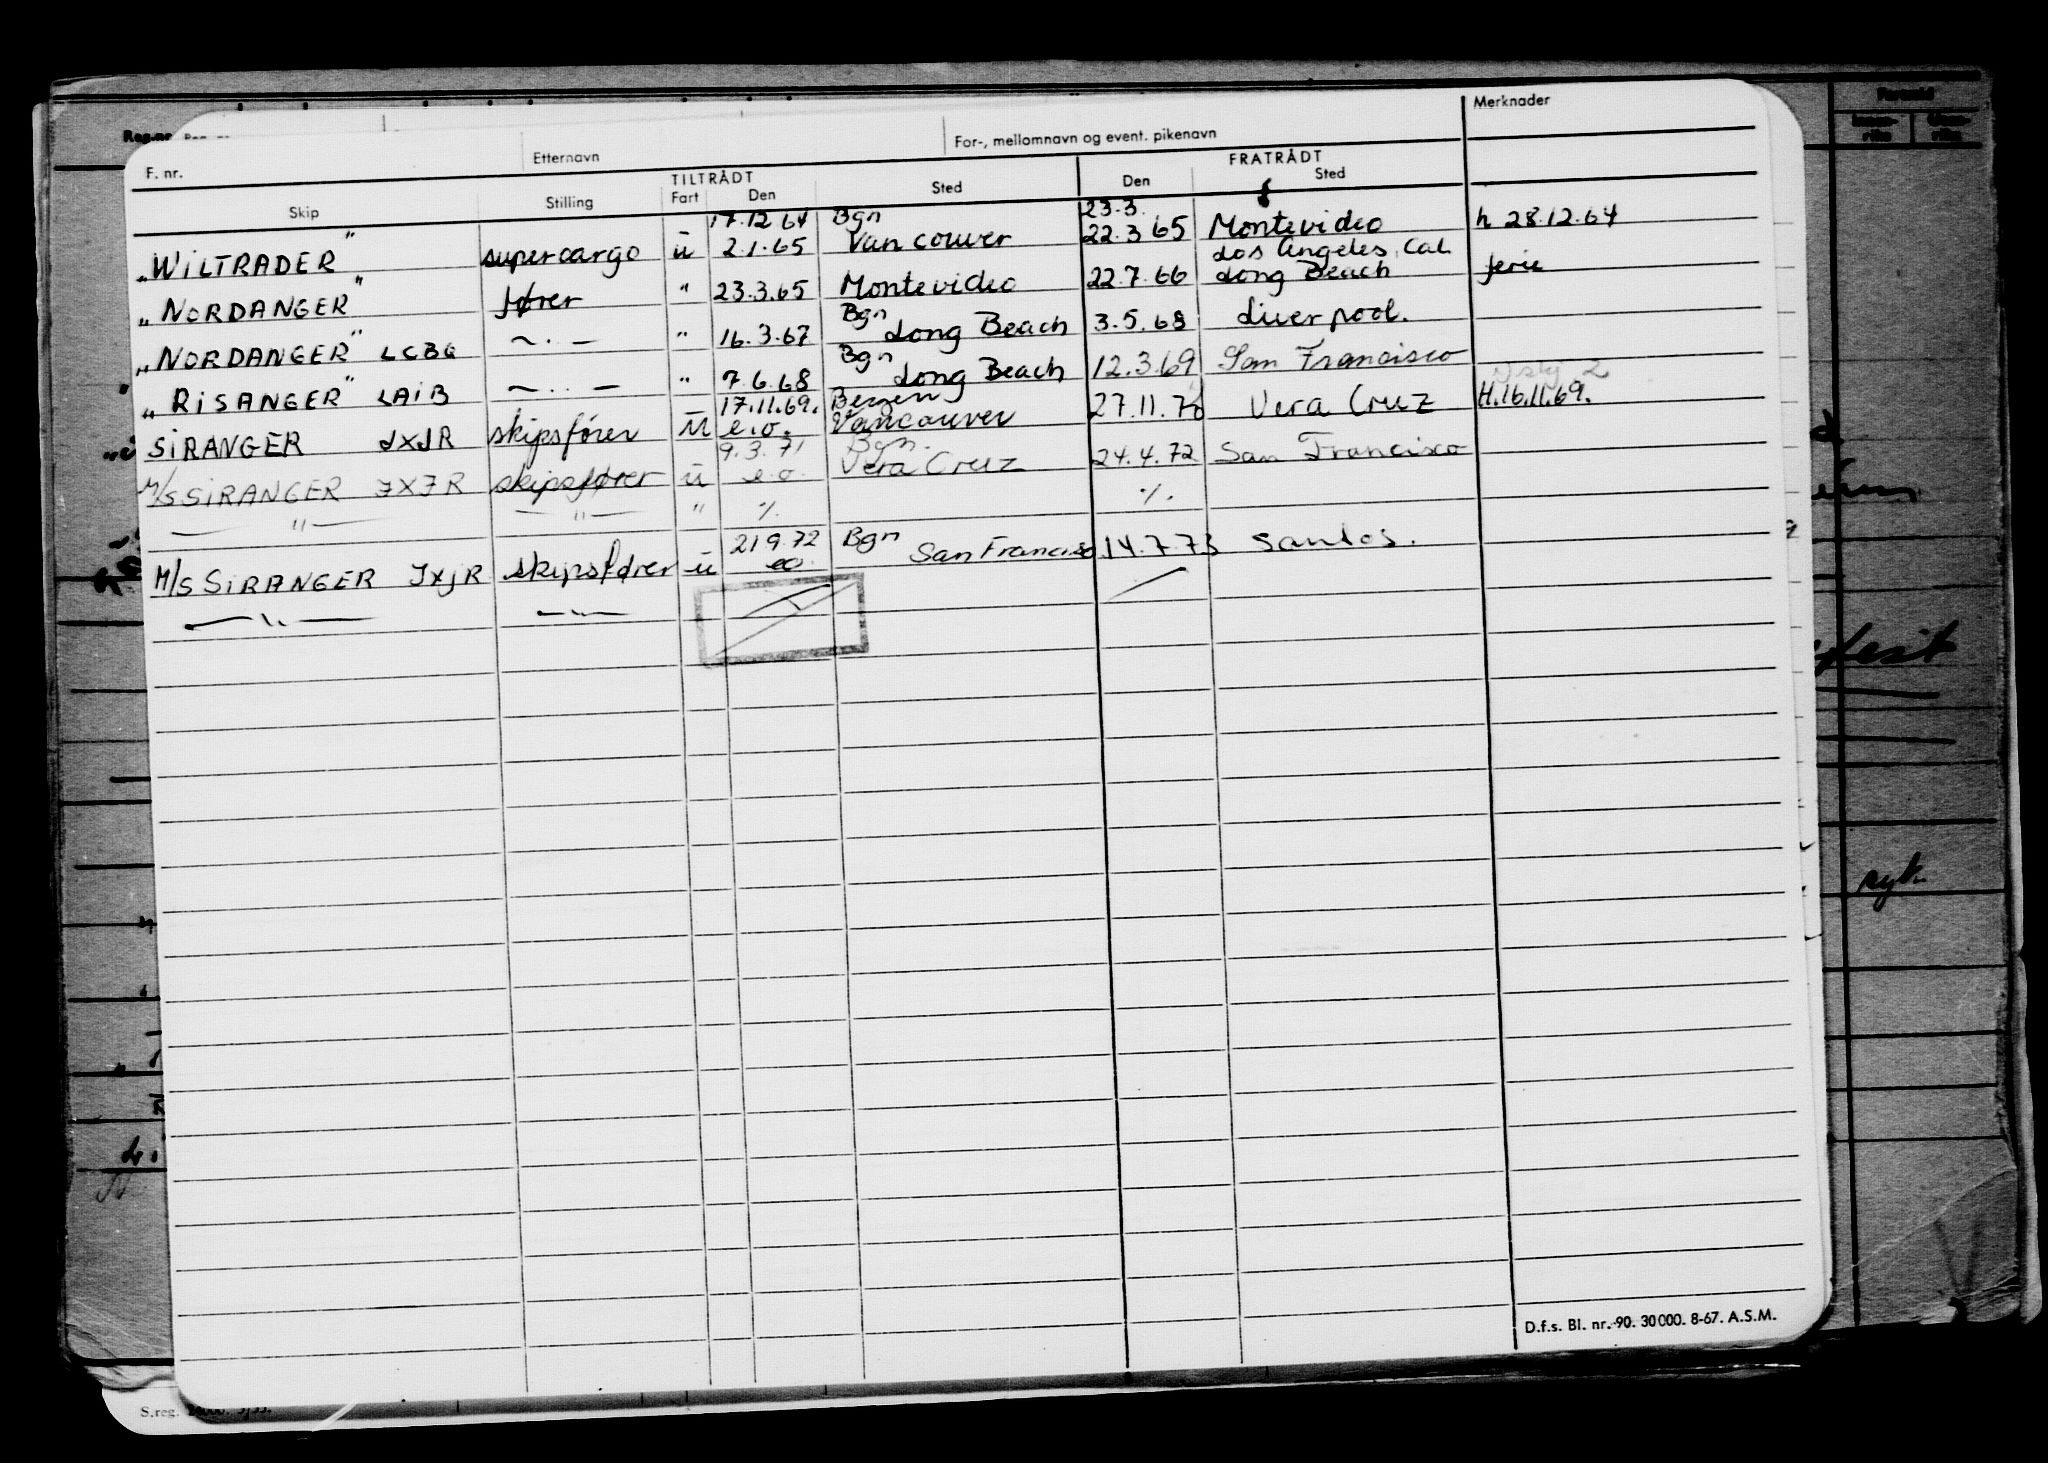 Merknader
F. nr. Etternavn For-, mellomnavn og event. pikenavn
TILTRÅDT FRATRÅDT
Skip Stilling Fart Den Sted Den Sted
17.12.64 Bgn 23.3.
"WILTRADER" supercargo u 2.1.65 Vancouver 22.3 65 Montevideo h 28.12.64
Los Angeles, Cal.
"NORDANGER" fører " 23.3.65 Montevideo 22.7.66 Long Beach ferie
Bgn
"NORDANGER" LCBG —..— " 16.3.67 Long Beach 3.5.68 Liverpool.
Bgn
"RISANGER" LAIB —..— " 7.6.68 Long Beach 12.3.69 San Francisco
17.11.69. Bergen
SIRANGER JXJR skipsfører u e.o. Vancouver 27.11.70 Vera Cruz H.16.11.69.
9.3.71 Bgn.
M/S SIRANGER JXJR skipsfører u e.o. Vera Cruz 24.4.72 San Francisco
— " — — " — " ./. ./.
21 9.72 Bgn
M/S SIRANGER JXJR skipsfører u eo. San Francisco 14.7.73 Santos.
— " — — " —
D.f.s. Bl. nr. 90. 30 000. 8-67. A.S.M.
S.reg.